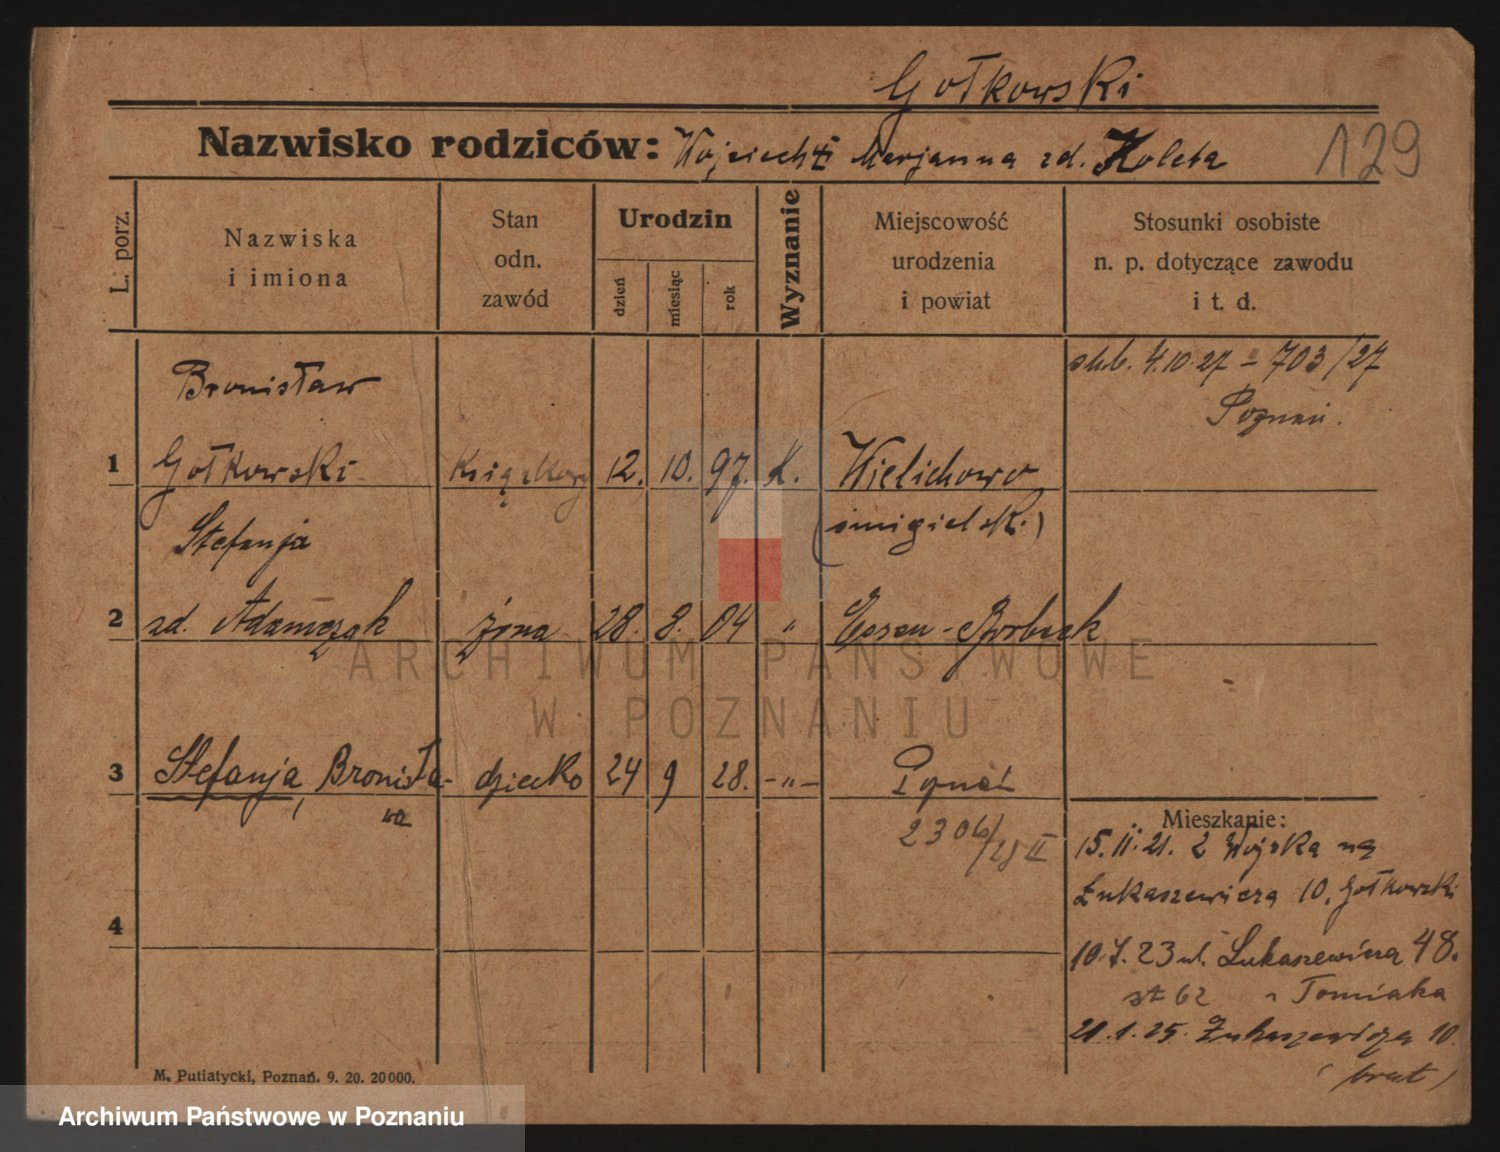 Gołkowski
Nazwisko rodziców: Wojciech i Marjanna zd. Koleta
129
L. porz.
Nazwiska
i imiona
Stan
odn.
zawód
Urodzin
dzień
miesiąc
rok
Wyznanie
Miejscowość
urodzenia
i powiat
Stosunki osobiste
n. p. dotyczące zawodu
i t. d.
ślub. 4.10.27 = 703/27
Poznań.
Bronisław
1 Gołkowski książkowy 12. 10. 97. K. Wielichowo
(śmigielsk.)
Stefanja
2 zd. Adamczak żona 28. 8. 04 "
3 Stefanja, Bronisła- dziecko 24 9 28. -"- Poznań
wa
2306/28 II
Mieszkanie:
15.11.21. z Wojska na
Łukaszewicza 10, Gołkowski
4
10.7.23 ul. Łukaszewicza 48.
Tomiaka
21.1.25. Łukaszewicza 10.
(brat)
M. Putiatycki, Poznań. 9. 20. 20000.
ARCHIWUM PAŃSTWOWE
W POZNANIU
Archiwum Państwowe w Poznaniu